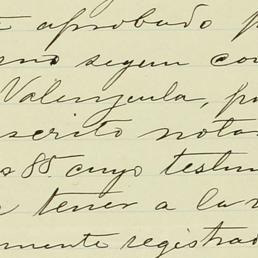 aprobado p
segun con
Valenzuela, pa
scrito nota
s 85. cuyo testim
tener a la v
mente registrad